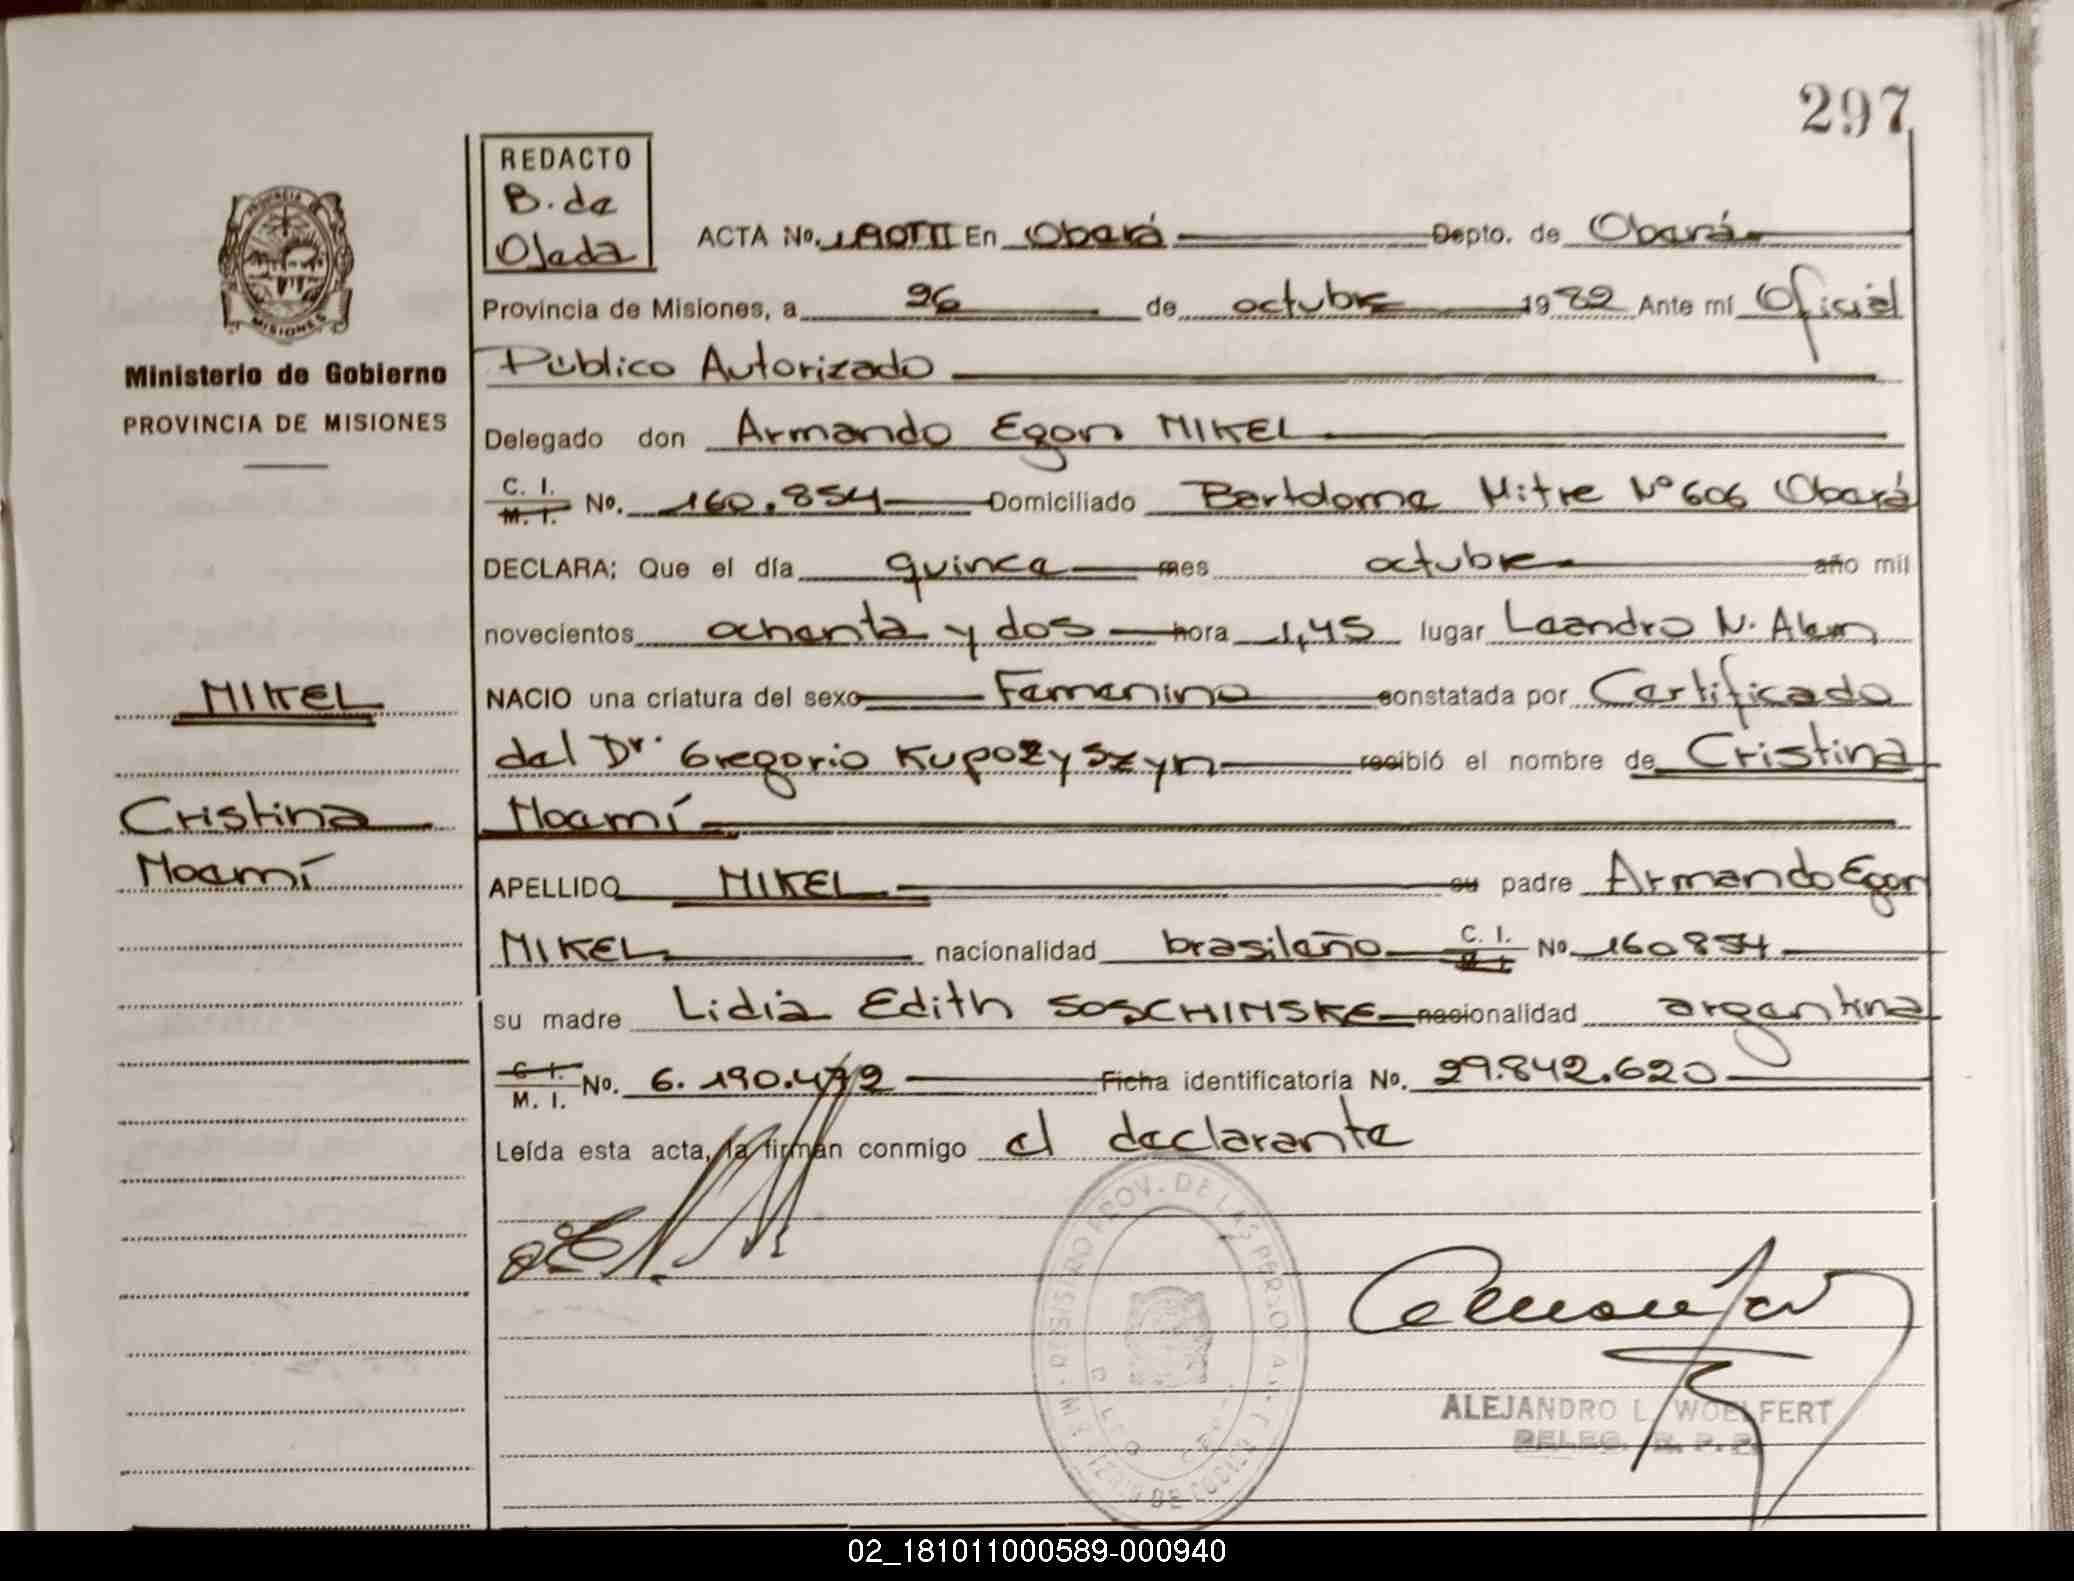 297
REDACTO
B. de
Ojeda
ACTA No. En Oberá Depto. de Oberá
Provincia de Misiones, a 26 de octubre 1982 Ante mí Oficial
Público Autorizado
Delegado don Armando Egon MIKEL
C. I. M. I. No. 160.854 Domiciliado Bartolome Mitre Nº 606 Oberá
DECLARA: Que el día quince mes octubre año mil
novecientos ochenta y dos hora 1,45 lugar Leandro N. Alem
NACIO una criatura del sexo Femenino constatada por Certificado
del Dr. Gregorio Kupozyszyn recibió el nombre de Cristina
Noemí
APELLIDO MIKEL su padre Armando Egon
MIKEL nacionalidad brasileño C. I. No 160854
su madre Lidia Edith SOSCHINSKE nacionalidad argentina
C. I. M. I. No. 6.190.472 Ficha identificatoria No. 29.842.620
Leída esta acta, la firman conmigo el declarante
PROVINCIA DE MISIONES
Ministerio de Gobierno
PROVINCIA DE MISIONES
MIKEL
Cristina
Noemí
REGISTRO PROV. DE LAS PERSONAS
ALEJANDRO L. WOELFERT
DELEG. R. P. P.
02_181011000589-000940